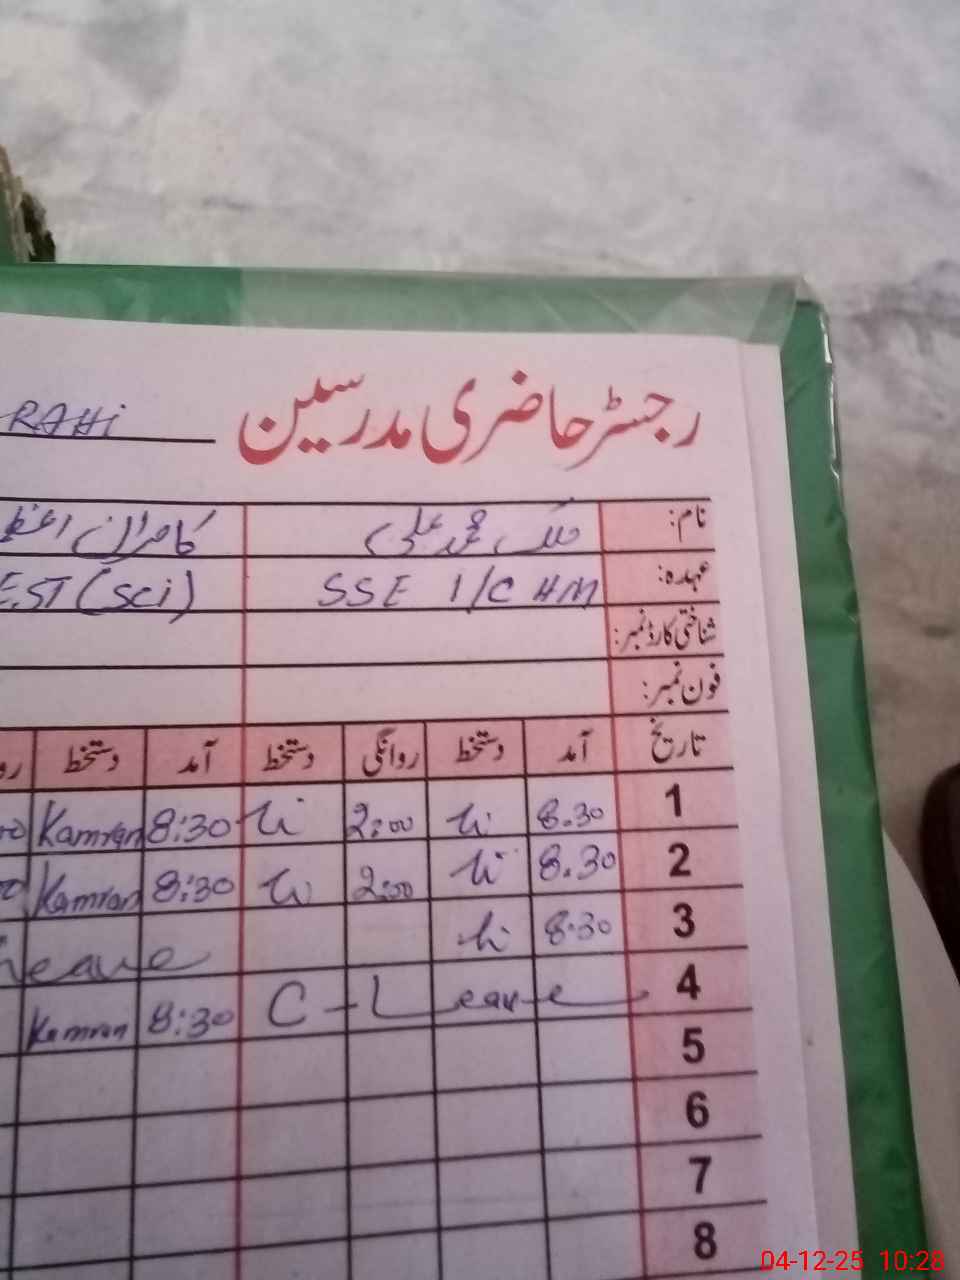 رجسٹر حاضری مدرسین RAHi
نام: ملک محمد علی کامران
عہدہ: SSE I/C HM EST (Sci)
شناختی کارڈ نمبر:
فون نمبر:
تاریخ آمد دستخط روانگی دستخط آمد دستخط
1 8.30 2:00 8:30 Kamran
2 8.30 2:00 8:30 Kamran
3 8:30 Leave
4 C-Leave 8:30 Kamran
5
6
7
8
04-12-25 10:28